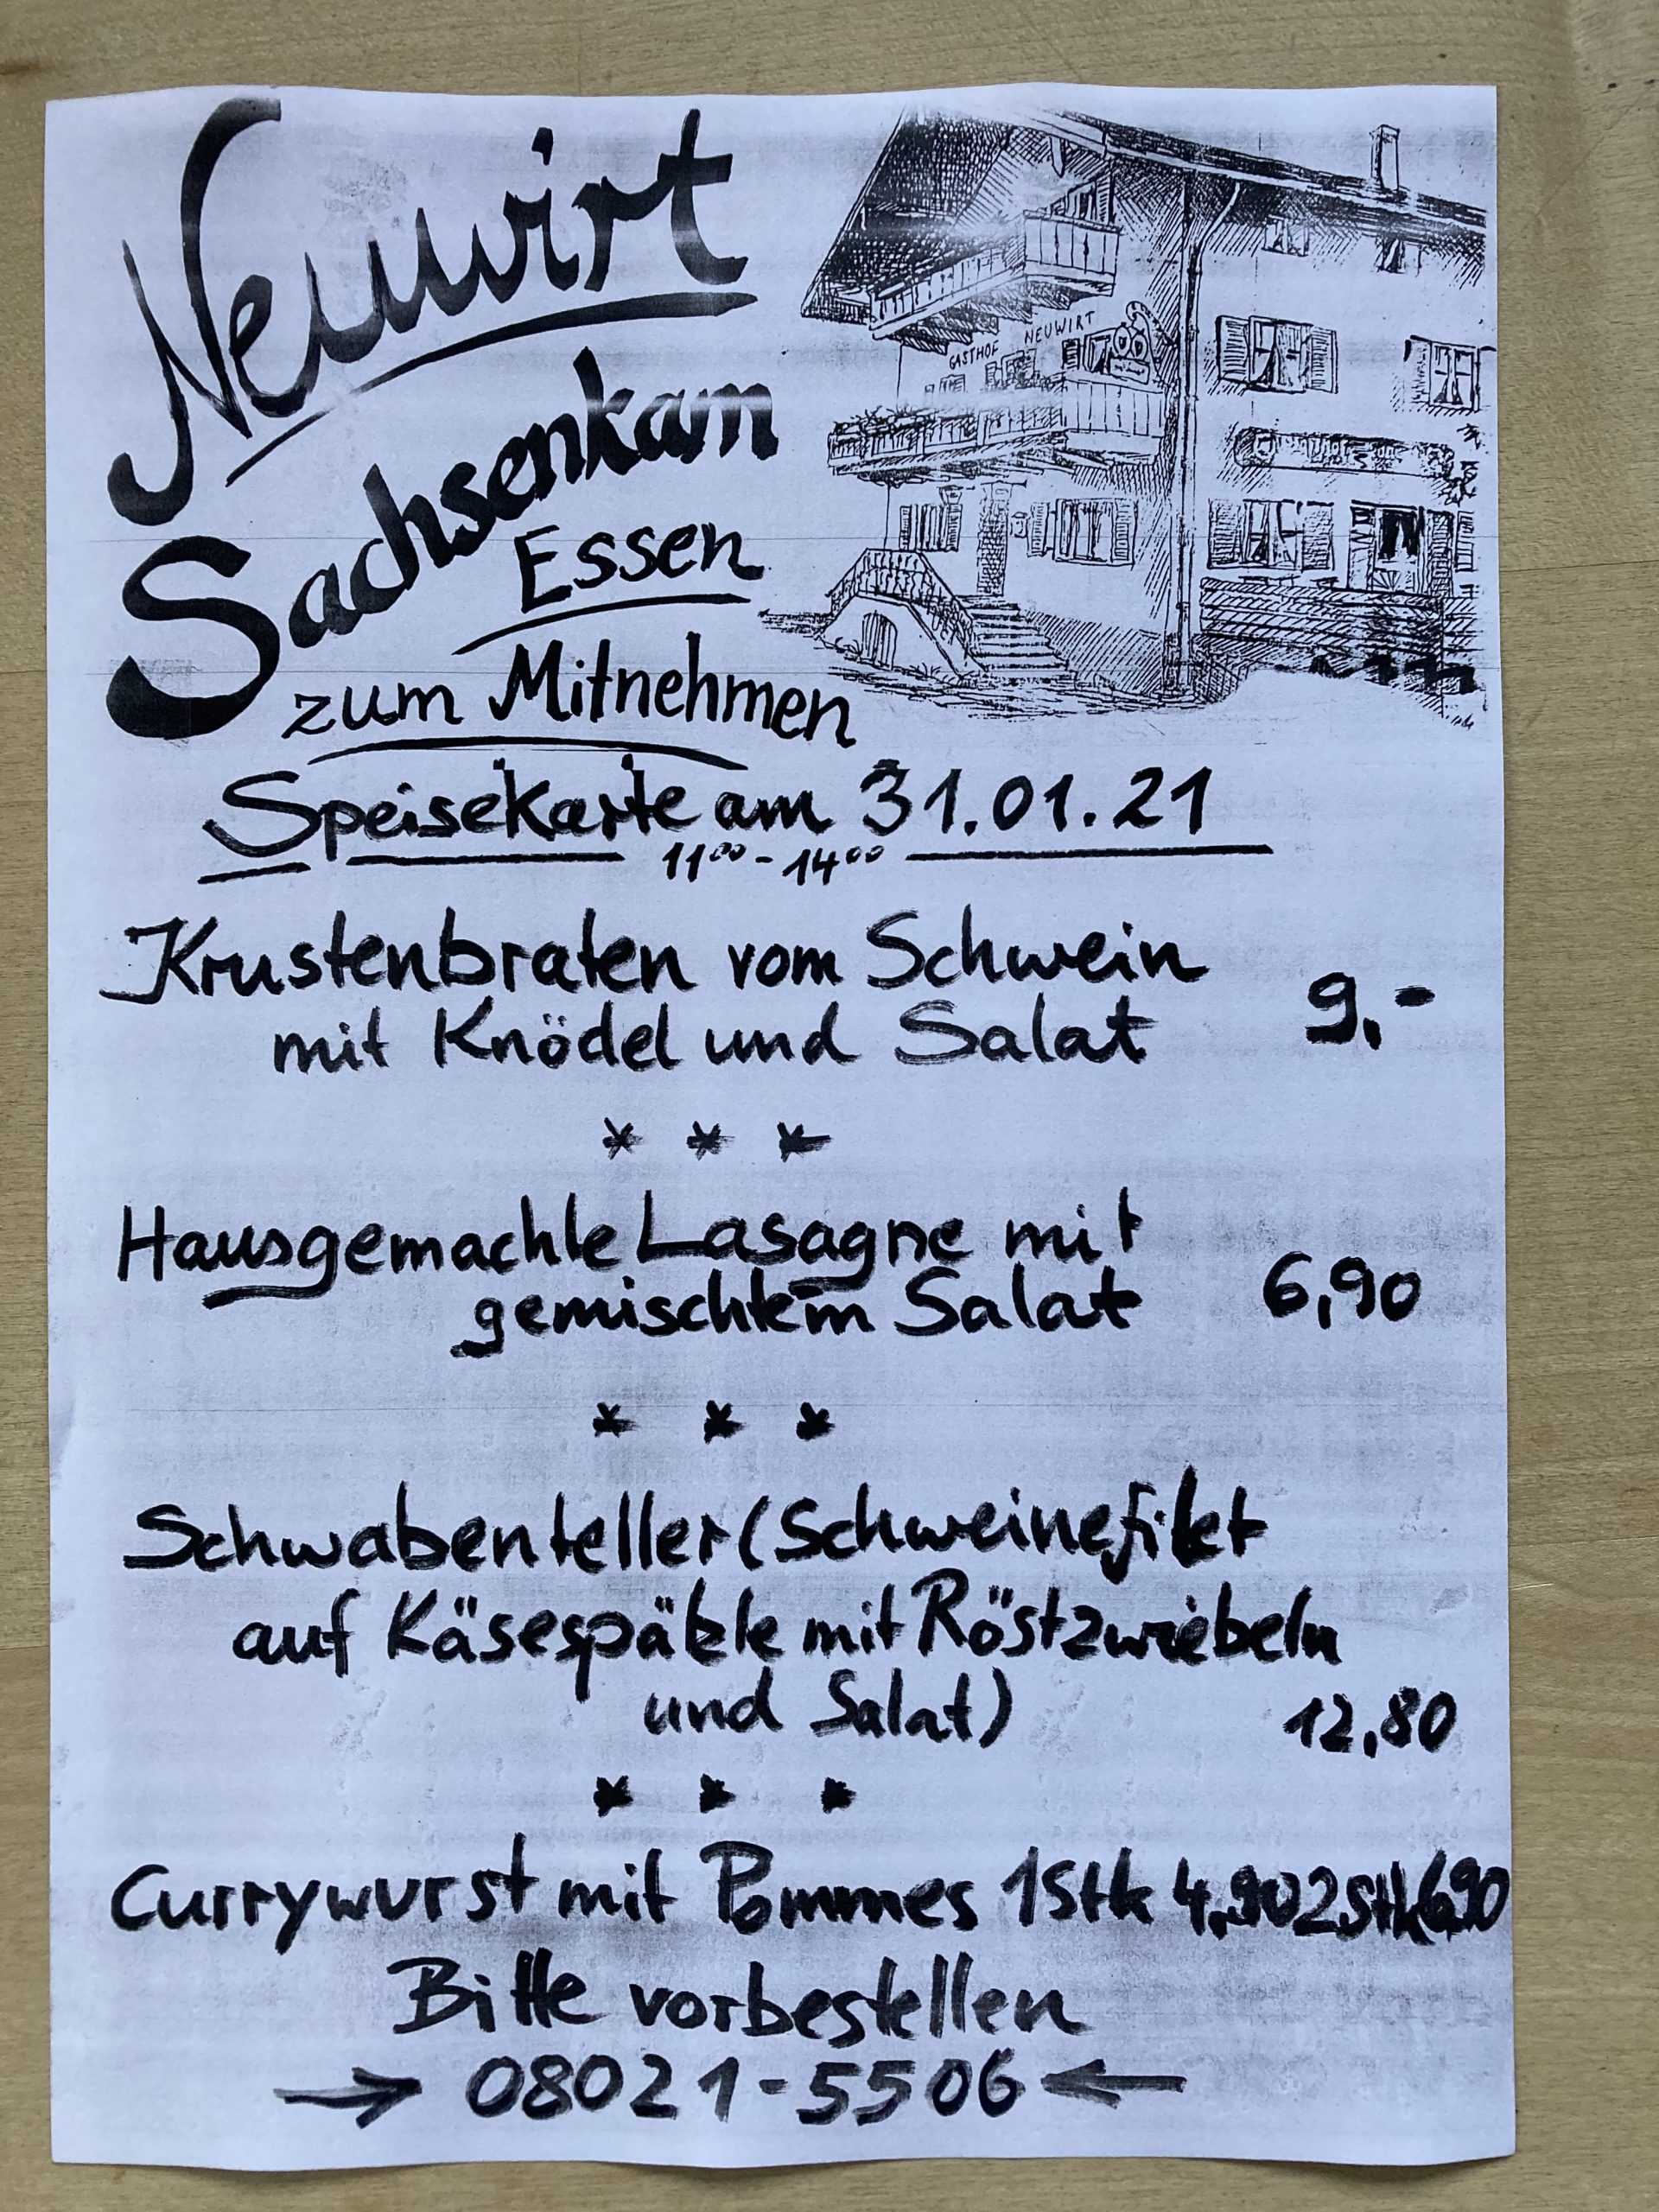 Neuwirt
Sachsenkam
GASTHOF NEUWIRT
Essen
zum Mitnehmen
Speisekarte am 31.01.21
11⁰⁰ - 14⁰⁰
Krustenbraten vom Schwein
mit Knödel und Salat 9,-
* * *
Hausgemachte Lasagne mit
gemischtem Salat 6,90
* * *
Schwabenteller (Schweinefilet
auf Käsespätzle mit Röstzwiebeln
und Salat) 12,80
* * *
Currywurst mit Pommes 1Stk 4,90 2Stk 6,90
Bitte vorbestellen
→ 08021-5506 ←